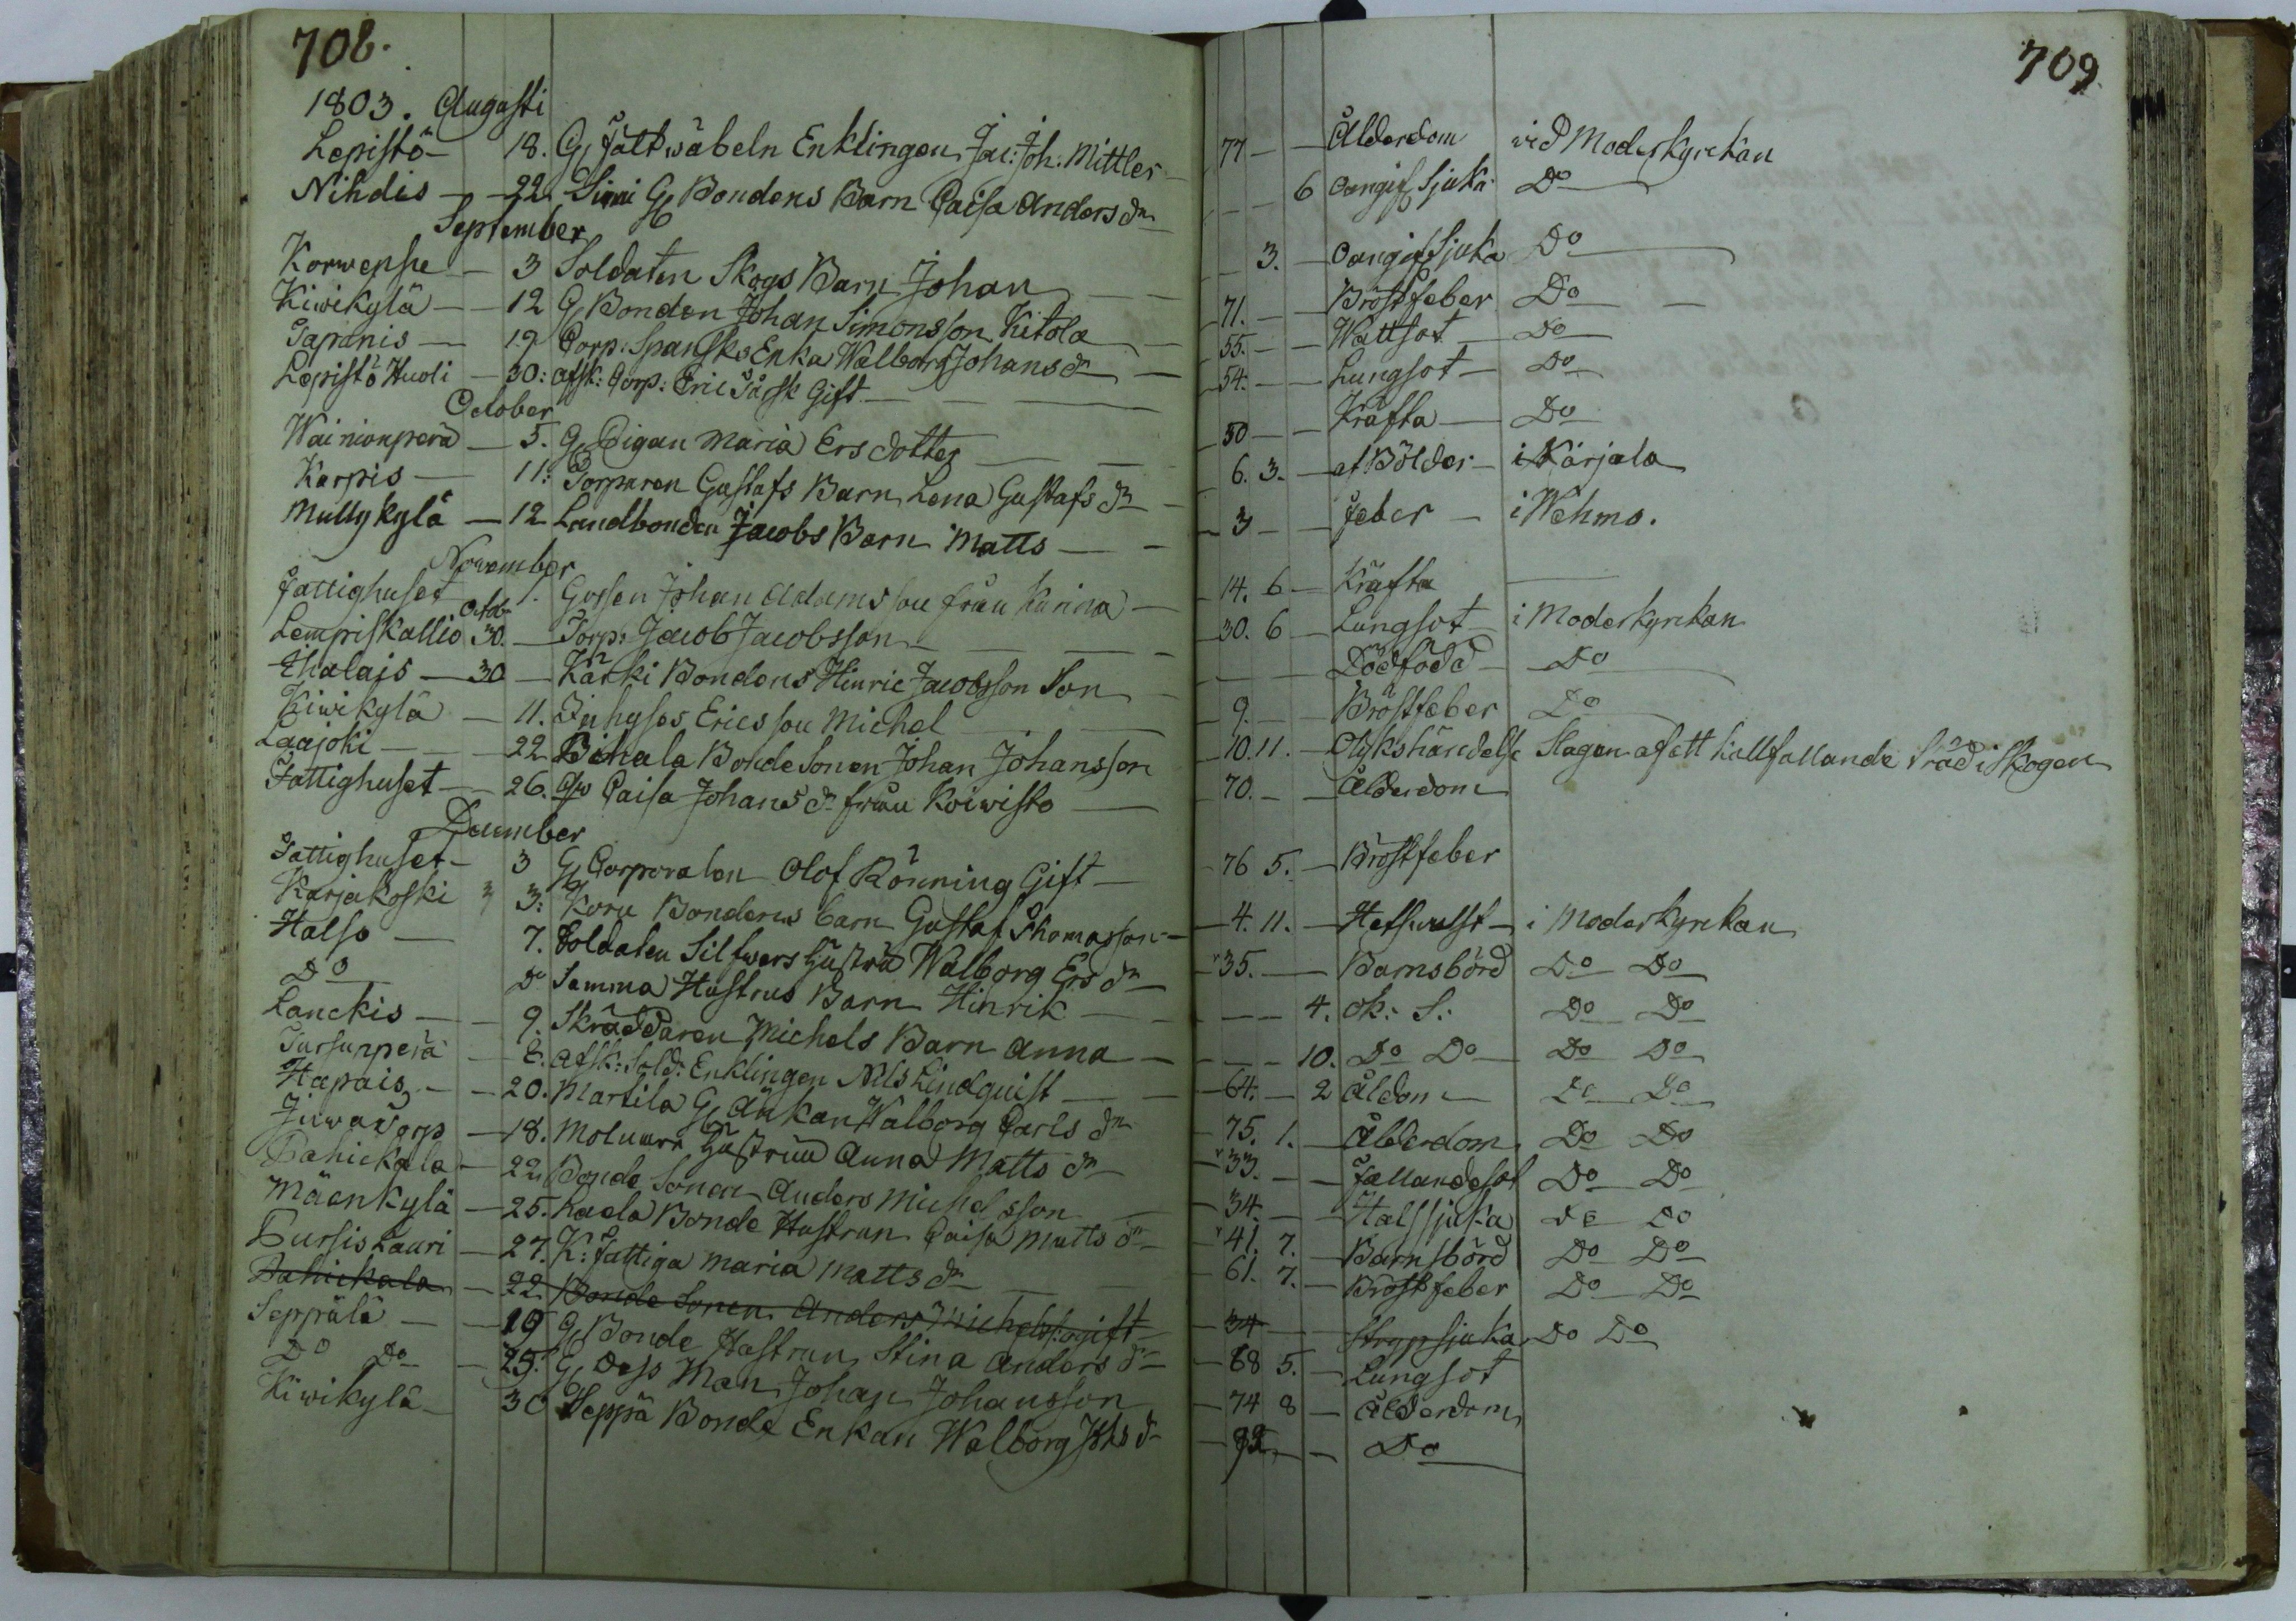 708.
1803. Augusti
Lepistö - 18. G. Fältwäbeln Enklingen Jac: Joh. Mittler
Nihdis - 22. Simi G. Bondens Barn Caisa Anders dr
September
Korwensu - 3 Soldaten Skogs Barn Johan
Kiwikylä - 12 G. Bonden Johan Simonsson Kitola
Tapanis - 19 Corp. Spansks Enka Walborg Johans dr
Lepistö Huoli - 30: afsk: Corp: Eric Tårsk Gift
October
Wainionperä - 5. G. Pigan Maria Ersdotter
Karpis - 11: Torparen Gustafs Barn Lena Gustafs dr
Mullykylä - 12 Landbonden Jacobs Barn Matts
November
Fattighuset 1. Gossen Johan Adamsson från Karina
Lempiskallio Octob 30. Torp: Jacob Jacobsson
Ihalais - 30 - Kärki Bondens Hinric Jacobsson Son
Kiwikylä - 11. Inhyses Ericsson Michel
Laajoki - 22 Bihala BondeSonen Johan Johansson
Fattighuset - 26. Caisa Johans dr från Koiwisto
December
Fattighuset - 3 G. Corporalen Olof Rönning Gift
Karjakoski 3: Koru Bondens barn Gustaf Thomasson
Halso - 7. Soldaten Silfwers Hustru Walborg Ers dr
Do Do Samma Hustrus Barn Hinrik
Lanckis - 9. Skräddaren Michels Barn Anna
Tursunperä - 8. afsk: Sold: Enklingen Nils Lindquist
Hapais - 20. Martila G. Änkan Walborg Carls dr
Juwa Torp - 18. Hustrun Anna Matts dr
Pahickala - 22 Bonde Sonen Anders Michelsson
Mäenkylä - 25. Kaela Bonde Hustrun Caisa Matts dr
Pursis Lauri - 27. K: fattiga Maria Matts dr
Pahickala - 22. Bonde Sonen Anders Michelss: ogift
Seppälä - 19 G. Bonde Hustrun Stina Anders dr
Do Do - 25. G. Dess Man Johan Johansson
Kiwikylä - 30 Seppä Bonde Enkan Walborg Johs dr
709
77 - Ålderdom vid Moderkyrkan
6 oangif. Sjuka Do
3. - oangif. Sjuka Do
71. - Bröstfeber Do
55. - Wattsot Do
54. - Lungsot - Do
50 - Kräfta - Do
6. 3. - af Bölder - i Karjala
3 - feber - i Wehmo.
14. 6 - Kräfta
30. 6 - Lungsot - i Moderkyrkan
Dödfödd - Do
9. - Bröstfeber Do
10. 11. - Olykshändelse Slagen af ett kullfallande Träd i Skogen
70. - Ålderdom
76 5. - Bröstfeber
4. 11. - - i Moderkyrkan
35. - Barnsbörd Do Do
4. ok: S: Do Do
10. Do Do Do Do
64. - 2 Åldom Do Do
75. 1. - Ålderdom Do Do
33. - Fallandesot Do Do
34. - Halssjuka Do Do
41. 7. - Barnsbörd Do Do
61. 7. - Bröstfeber Do Do
34 - Strypsjuka Do Do
68 5. - Lungsot
74 8 - Ålderdom
- Do